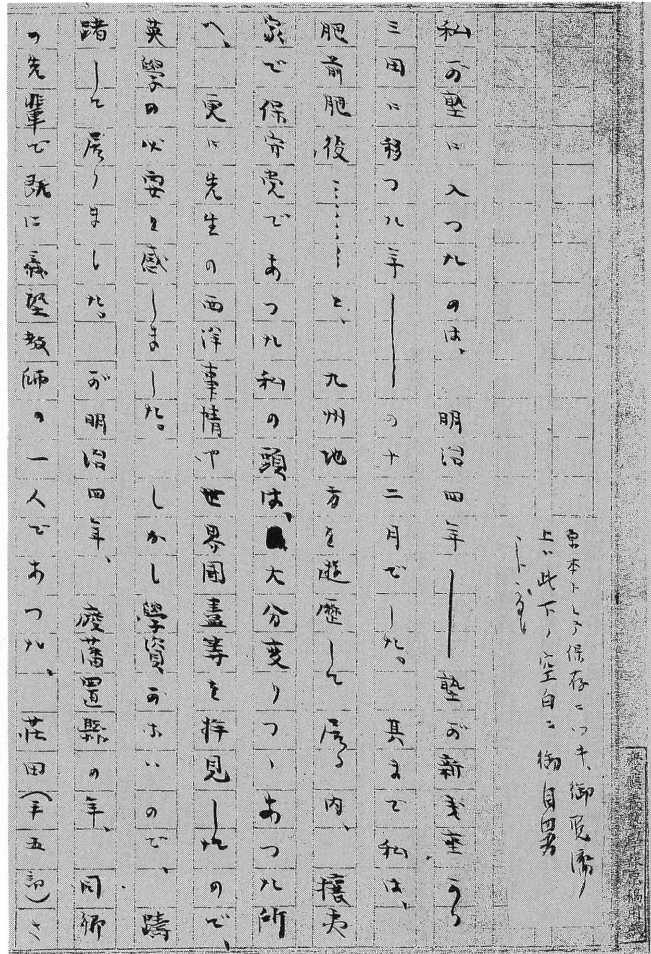 原本トシテ保存ニツキ、御覧済ノ
上ハ此下ノ空白ニ御自署
私が塾に入つたのは、明治四年――塾が新銭座から
三田に移つた年――の十二月でした。其まで私は、
肥前肥後………と、九州地方を遊歴して居る内、攘夷
家で保守党であつた私の頭は、大分変りつゝあつた所
へ、更に先生の西洋事情や世界國盡等を拝見したので、
英學の必要を感しました。しかし學資がないので、躊
躇して居りました。が明治四年、廃藩置縣の年、同郷
の先輩で既に義塾教師の一人であつた、荘田(平五郎)さ